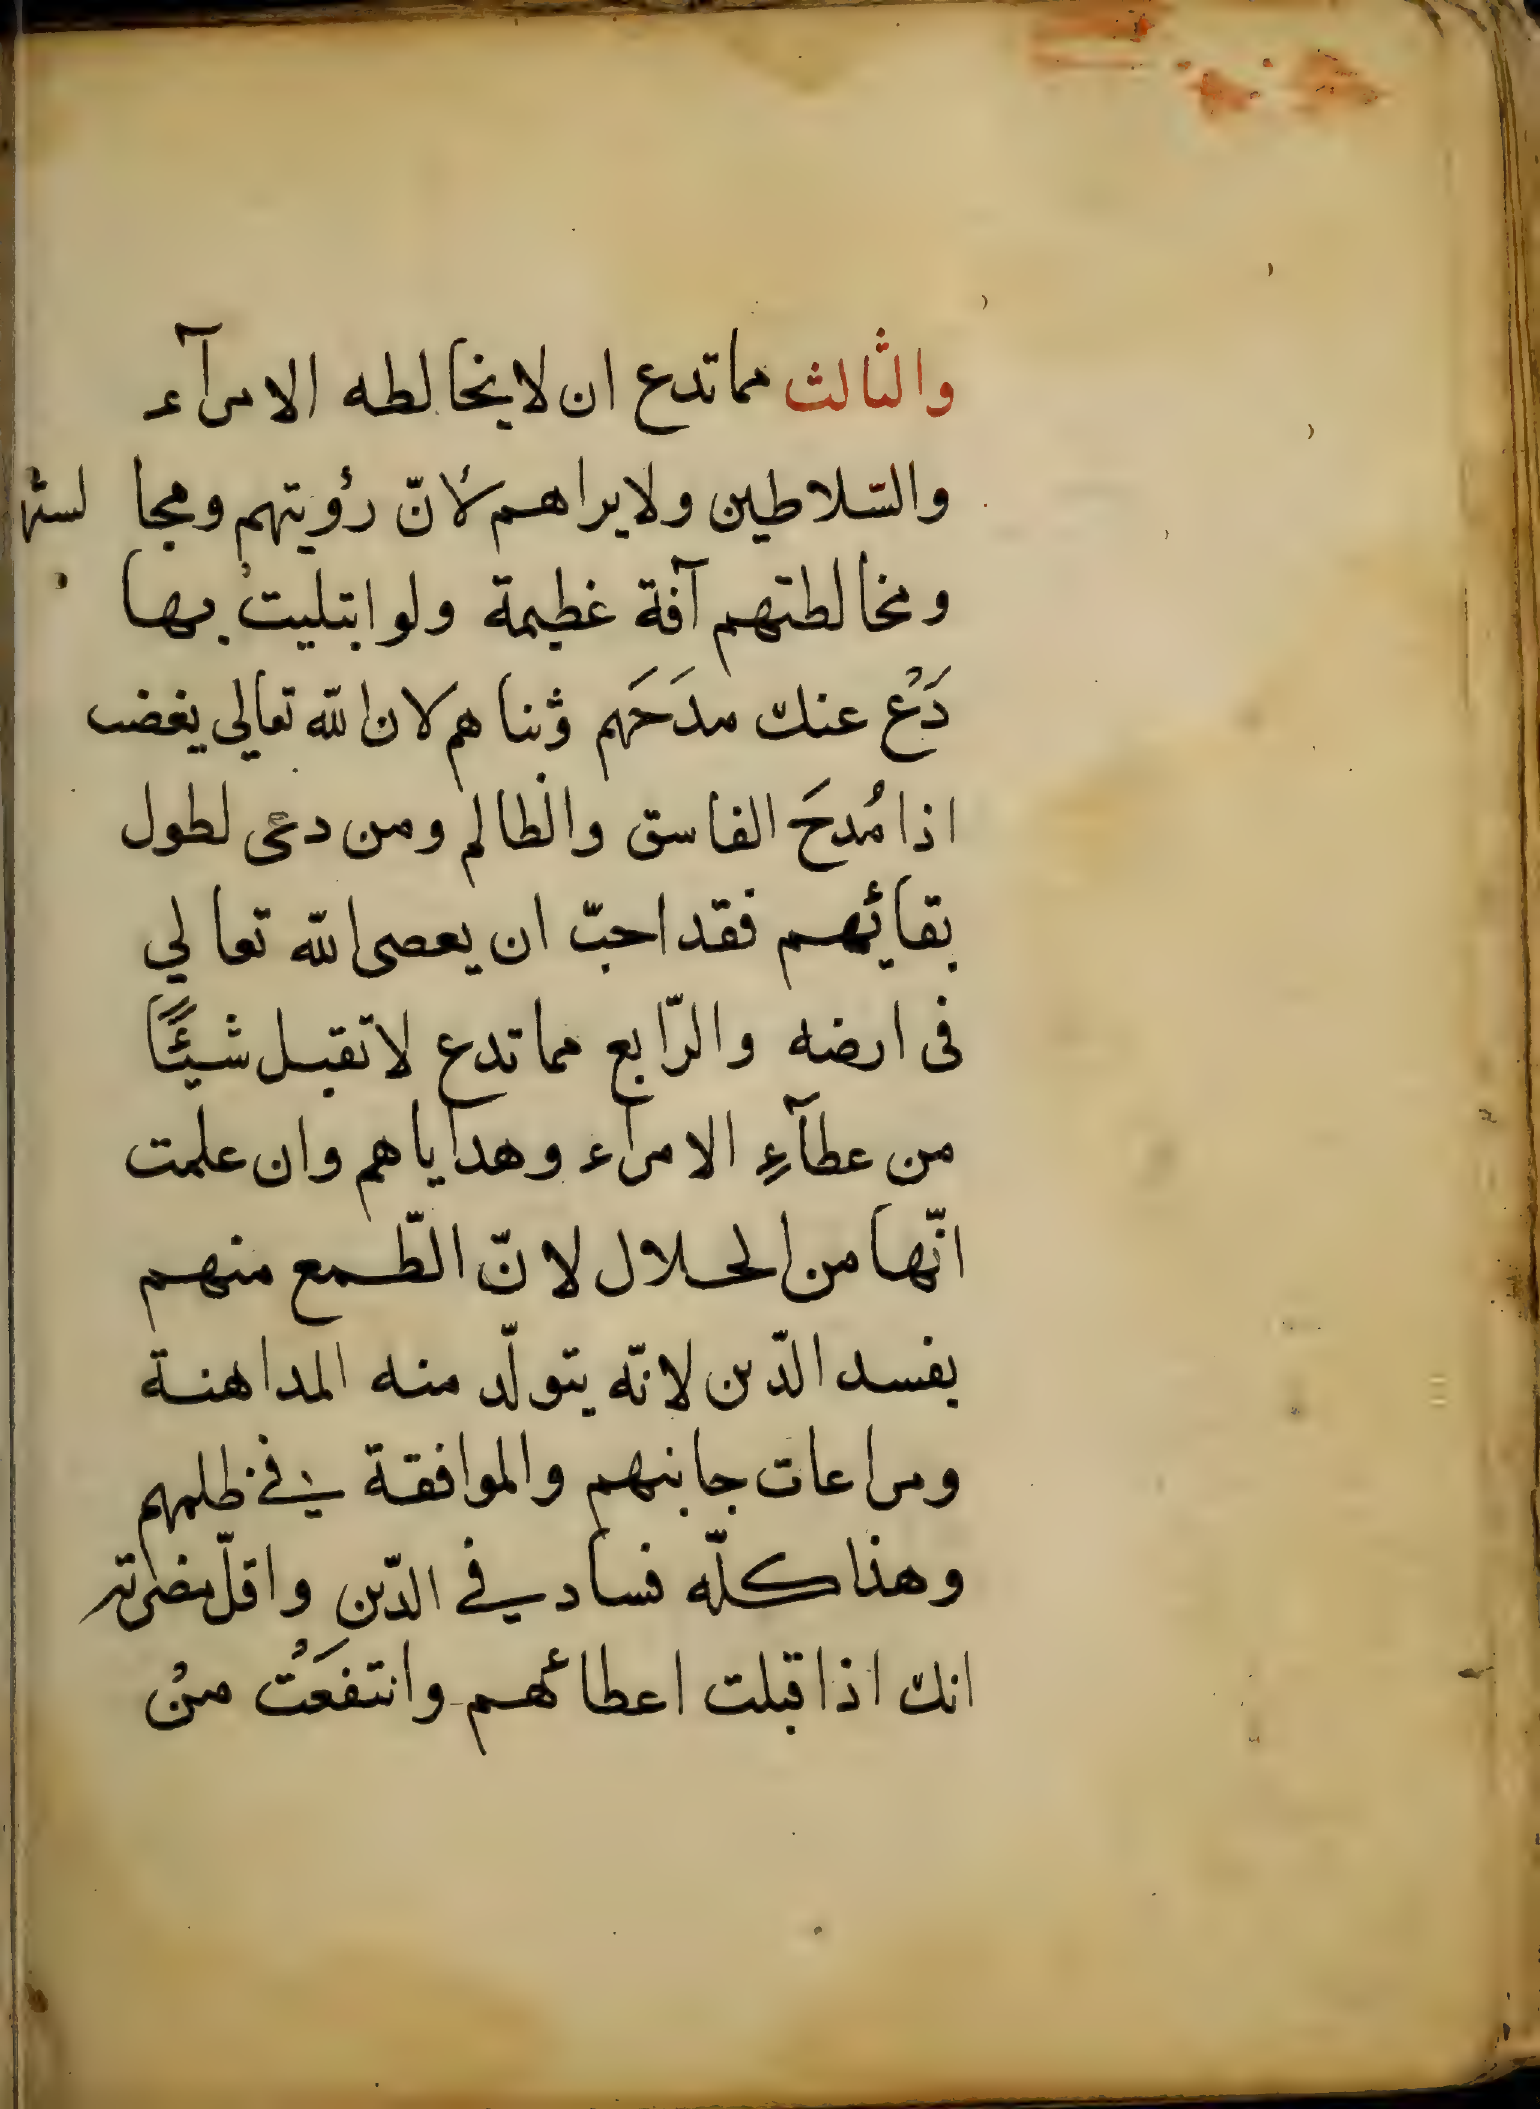 والثالث مما تدع ان لا يخالطه الامرآء
والسّلاطين ولا يراهم لأنّ رؤيتهم ومجالستهم
ومخالطتهم آفة غطيمة ولو ابتليت بها
دَعْ عنك مدَحَهم وثناهم لان الله تعالى يغضب
اذا مُدحَ الفاسق والظالم ومن دعى لطول
بقائهم فقد احبّ ان يعصى الله تعالي
فى ارضه والرّابع مما تدع لا تقبل شيئًا
من عطآءِ الامرآء وهداياهم وان علمت
انّها من الحلال لانّ الطّمع منهم
يفسد الدّين لانّه يتولّد منه المداهنة
ومراعات جانبهم والموافقة في ظلمهم
وهذا كلّه فساد في الدّين واقلّ مضرته
انك اذا قبلت اعطائهم وانتفعَتْ منْ